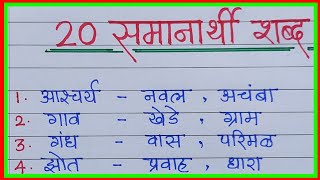 20 समानार्थी शब्द
1. आश्चर्य - नवल , अचंबा
2. गाव - खेडे , ग्राम
3. गंध - वास , परिमळ
4. झोत - प्रवाह , धारा